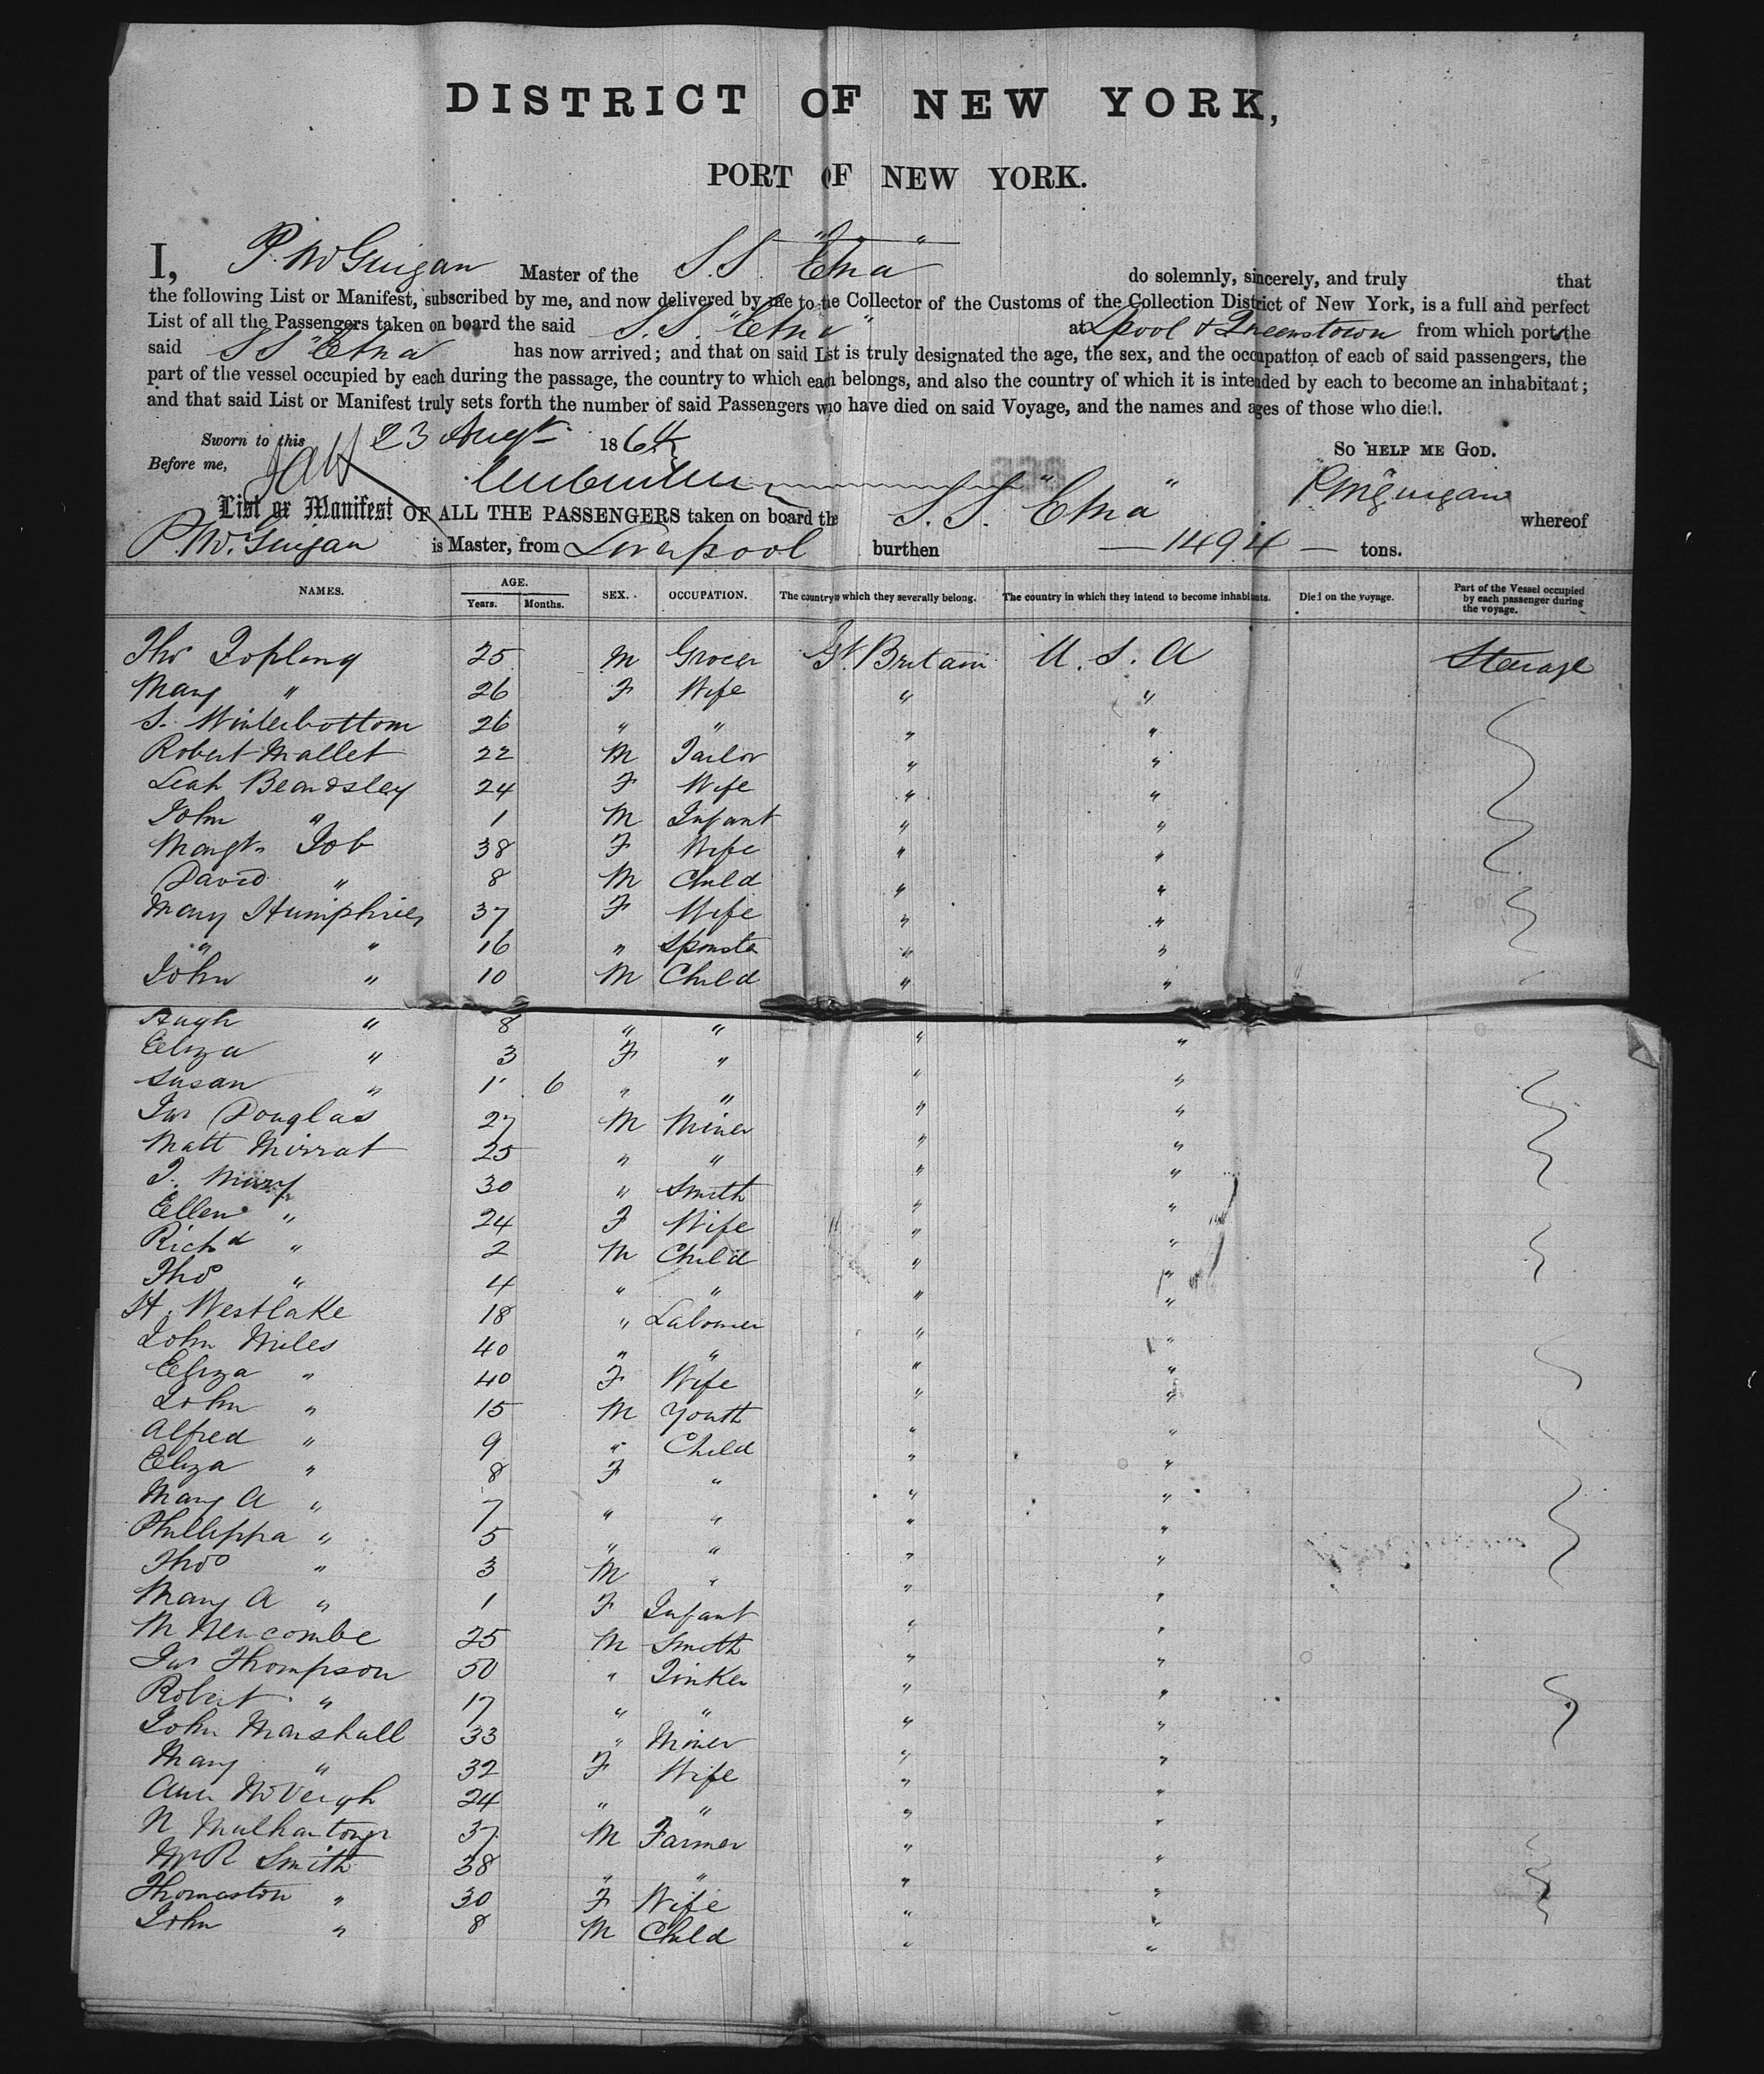 DISTRICT OF NEW YORK,
PORT OF NEW YORK.
I, P. McGuigan Master of the S.S. "Etna" do solemnly, sincerely, and truly that
the following List or Manifest, subscribed by me, and now delivered by me to the Collector of the Customs of the Collection District of New York, is a full and perfect
List of all the Passengers taken on board the said S.S. "Etna" at Lpool & Queenstown from which ports the
said SS "Etna has now arrived; and that on said List is truly designated the age, the sex, and the occupation of each of said passengers, the
part of the vessel occupied by each during the passage, the country to which each belongs, and also the country of which it is intended by each to become an inhabitant;
and that said List or Manifest truly sets forth the number of said Passengers who have died on said Voyage, and the names and ages of those who died.
Sworn to this 23 Augt 1864 SO HELP ME GOD.
Before me, P McGuigan
List or Manifest OF ALL THE PASSENGERS taken on board the S.S. "Etna" whereof
P. McGuigan is Master, from Liverpool burthen — 1494 — tons.
NAMES. AGE. Years. Months. SEX. OCCUPATION. The country to which they severally belong. The country in which they intend to become inhabitants. Died on the voyage. Part of the Vessel occupied by each passenger during the voyage.
Thos Topling 25 M Grocer Gt Britain U.S.A Steerage
Mary " 26 F Wife " "
S. Winterbottom 26 " " " "
Robert Mallet 22 M Tailor " "
Leah Beardsley 24 F Wife " "
John " 1 M Infant " "
Margt Job 38 F Wife " "
David " 8 M Child " "
Mary Humphries 37 F Wife " "
" " 16 " Spinster " "
John " 10 M Child " "
Hugh " 8 " " " "
Eliza " 3 F " " "
Susan " 1 6 " " " "
Jas Douglas 27 M Miner " "
Matt Mirrat 25 " " " "
J. 30 " Smith " "
Ellen " 24 F Wife " "
Richd " 2 M Child " "
Thos " 4 " " " "
H. Westlake 18 " Labourer " "
John Miles 40 " " " "
Eliza " 40 F Wife " "
John " 15 M Youth " "
Alfred " 9 " Child " "
Eliza " 8 F " " "
Mary A " 7 " " " "
Phillippa " 5 " " " "
Thos " 3 M " " "
Mary A " 1 F Infant " "
M Newcombe 25 M Smith " "
Jas Thompson 50 " Tinker " "
Robert " 17 " " " "
John Marshall 33 " Miner " "
Mary " 32 F Wife " "
Ann McVeigh 24 " " " "
N 37 M Farmer " "
Smith 38 " " " "
Thomaston " 30 F Wife " "
John " 8 M Child " "